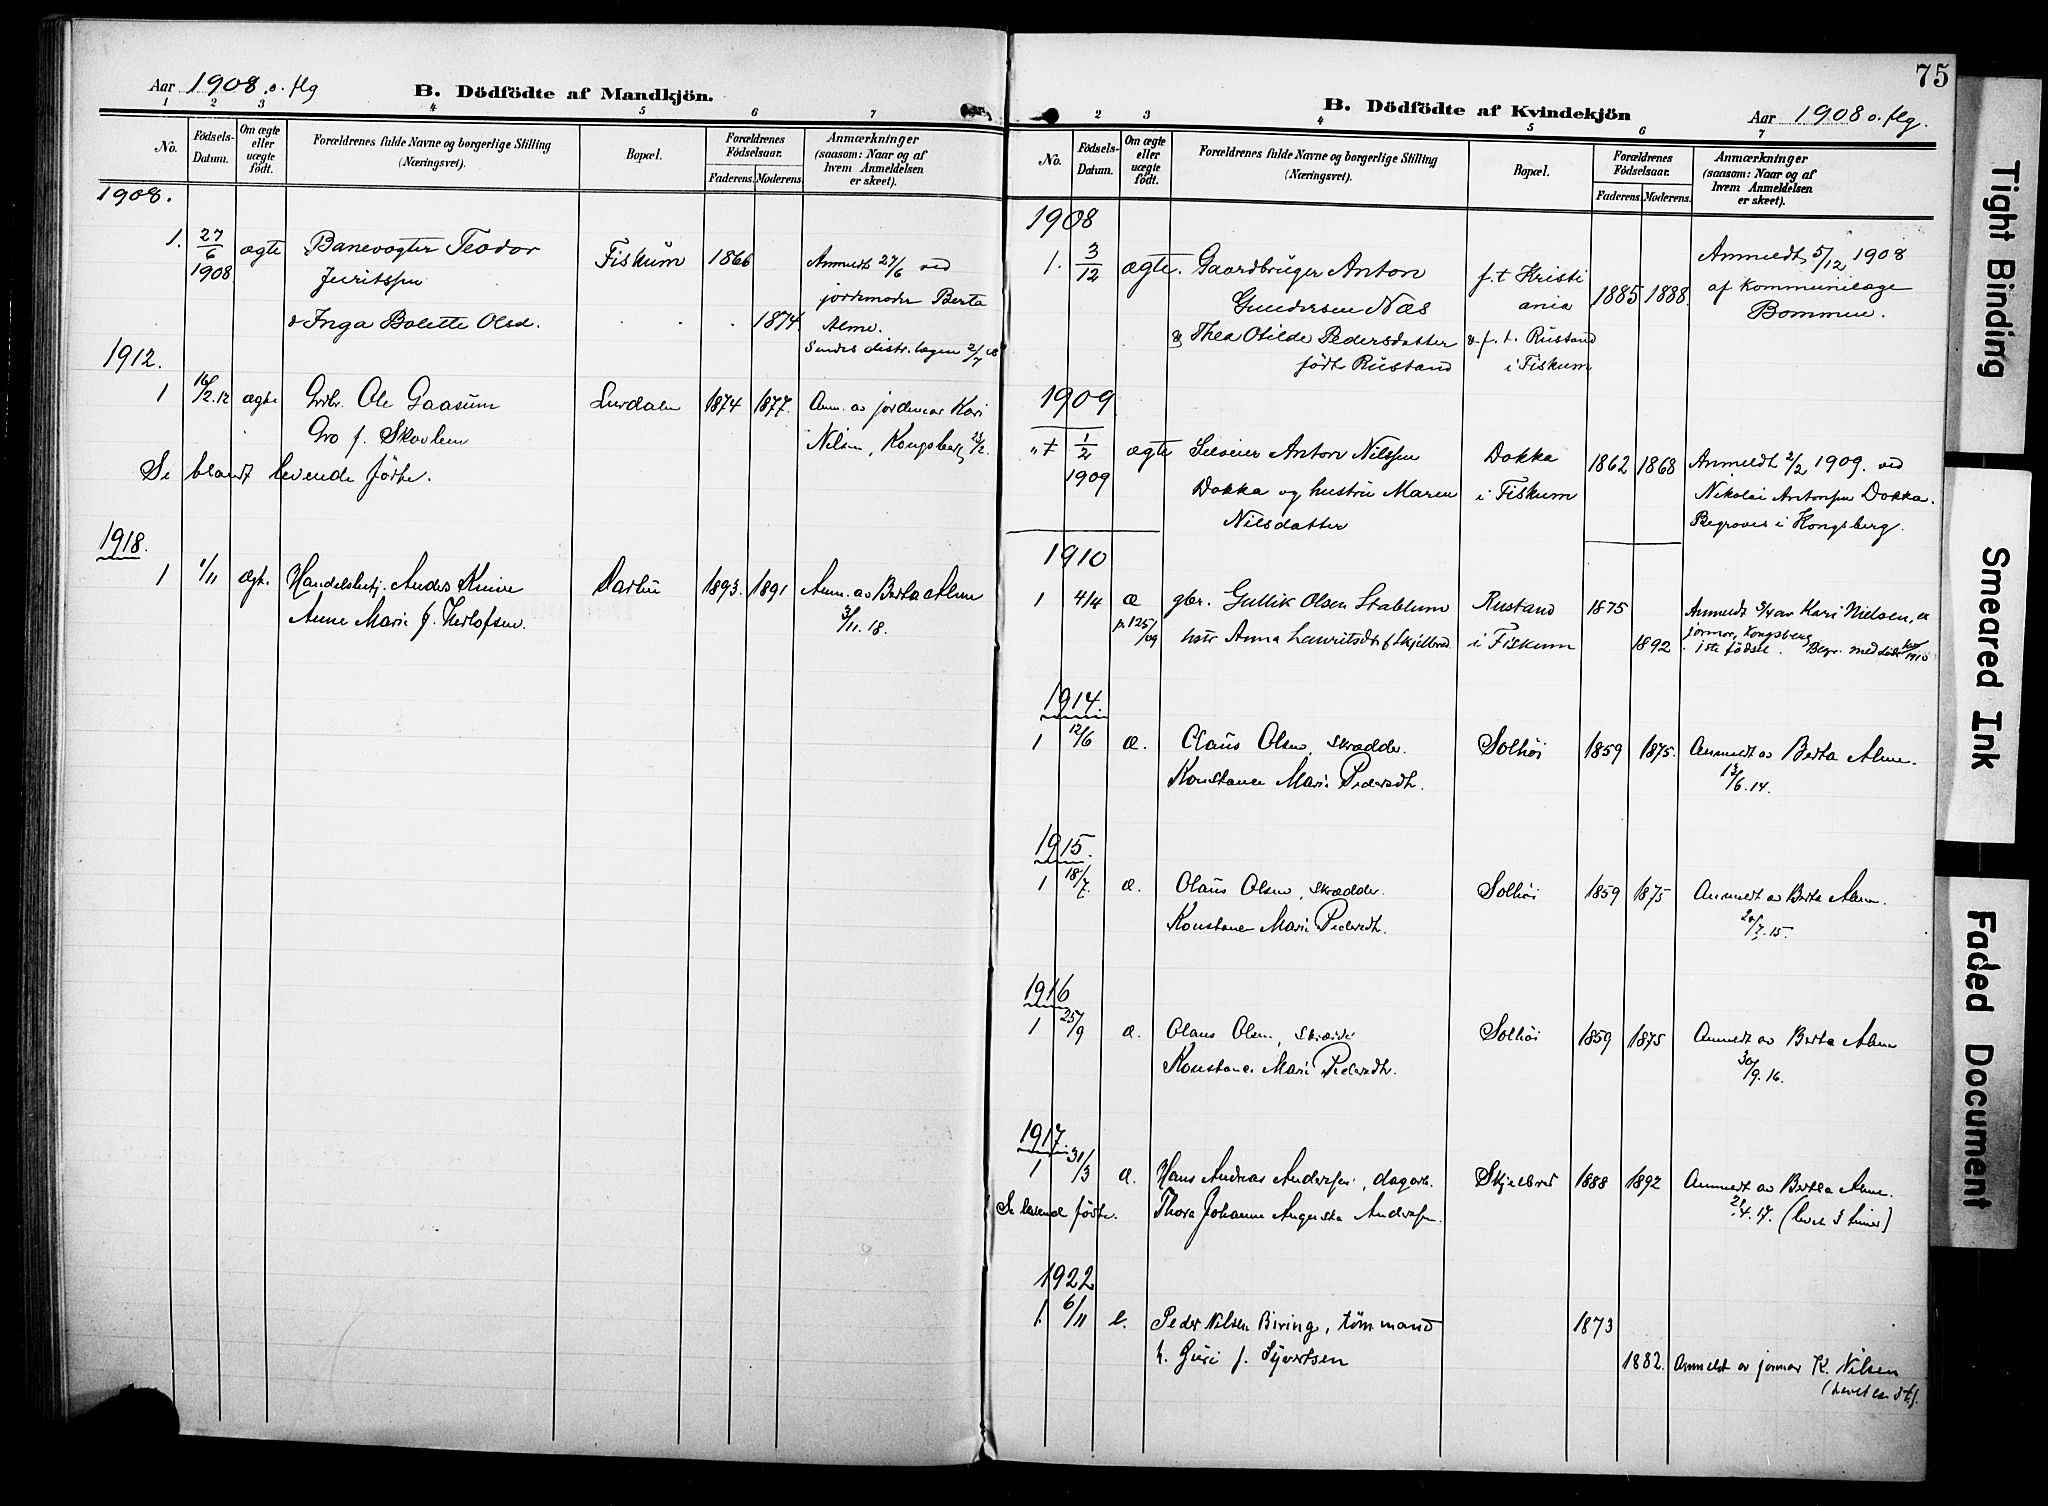 Aar 1908 o. flg
B. Dödfödte af Mandkjön.
1 2 3 4 5 6 7
No.
Födsels-Datum.
Om ægte eller uægte födt.
Forældrenes fulde Navne og borgerlige Stilling (Næringsvei).
Bopæl.
Forældrenes Födselsaar.
Faderens. Moderens.
Anmærkninger (saasom: Naar og af hvem Anmeldelsen er skeet).
1908.
1. 27/6 ægte Banevogter Teodor Fiskum 1866 Anmeldt 27/6 ved
1908 jordemoder Berta
& Inga Bolette Olsd. 1874 Alme.
Sendes distr.lægen 2/7 08
1912.
1 16/2.12 ægte Grdbr. Ole Gaasum 1874 1877. Anm. av jordemor Kari
Gro f. Skovlien Nilsen, Kongsberg 23/2.
Se blandt levende födte.
1918.
1 1/11 ægt. Handelsbetj. Anders Darbu 1893. 1891 Anm. av Berta Alme
Anne Marie f. Herlofsen 3/11. 18.
75
B. Dödfödte af Kvindekjön
Aar 1908 o. flg.
2 3 4 5 6 7
No.
Födsels-Datum.
Om ægte eller uægte födt.
Forældrenes fulde Navne og borgerlige Stilling (Næringsvei).
Bopæl.
Forældrenes Födselsaar.
Faderens. Moderens.
Anmærkninger (saasom: Naar og af hvem Anmeldelsen er skeet).
1908
1. 3/12 ægte. Gaardbruger Anton f. t. Kristi 1885 1888. Anmeldt 5/12 1908
Gundersen Næs ania af Kommunelæge
& Thea Otilde Pedersdatter & f. t. Rustand Bommen.
födt Rustand i Fiskum
1909
1/2 ægte Selveier Anton Nilssen Dokka 1862 1868 Anmeldt 2/2 1909. ved
1909 Dokka og hustru Maren i Fiskum Nikolai Antonsen Dokka.
Nilsdatter Begraves i Kongsberg.
1910
1 4/4 æ gbr. Gullik Olsen Stablum Rustand 1875 Anmeldt av Kari Nielsen,
hstr Anna Lauritsdtr f Skjelbred i Fiskum 1892 jormor, Kongsberg
1ste födsel. Begr. med 1910
1914.
1 12/6 æ. Claus Olsen, Skrædder. Solhöi 1859 1875. Anmeldt av Berta Alme.
Konstance Marie Pedersdtr. 13/6. 14.
1915.
1 18/7. æ. Olaus Olsen, Skrædder. Solhöi 1859 1875 Anmeldt av Berta Alme.
Konstance Marie Pedersdtr. 20/7. 15.
1916
1 25/9 æ. Olaus Olsen, Skrædder Solhöi 1859 1875 Anmeldt av Berta Alme
Konstance Marie Pedersdtr. 30/9. 16.
1917.
1 31/3 æ. Hans Andreas Andersen, dagarb. Skjelbred 1888 1892 Anmeldt av Berta Alme.
Se levend födte. Thora Johanne Augusta Andersen. 2/4. 17. (levet 3 timer)
1922
1. 6/11 e. Peder Nilsen Biring, tömmand 1873
h. Guri f. Syvertsen 1882. Anmeldt av jormor K. Nilsen
Tight Binding
Smeared Ink
Faded Document